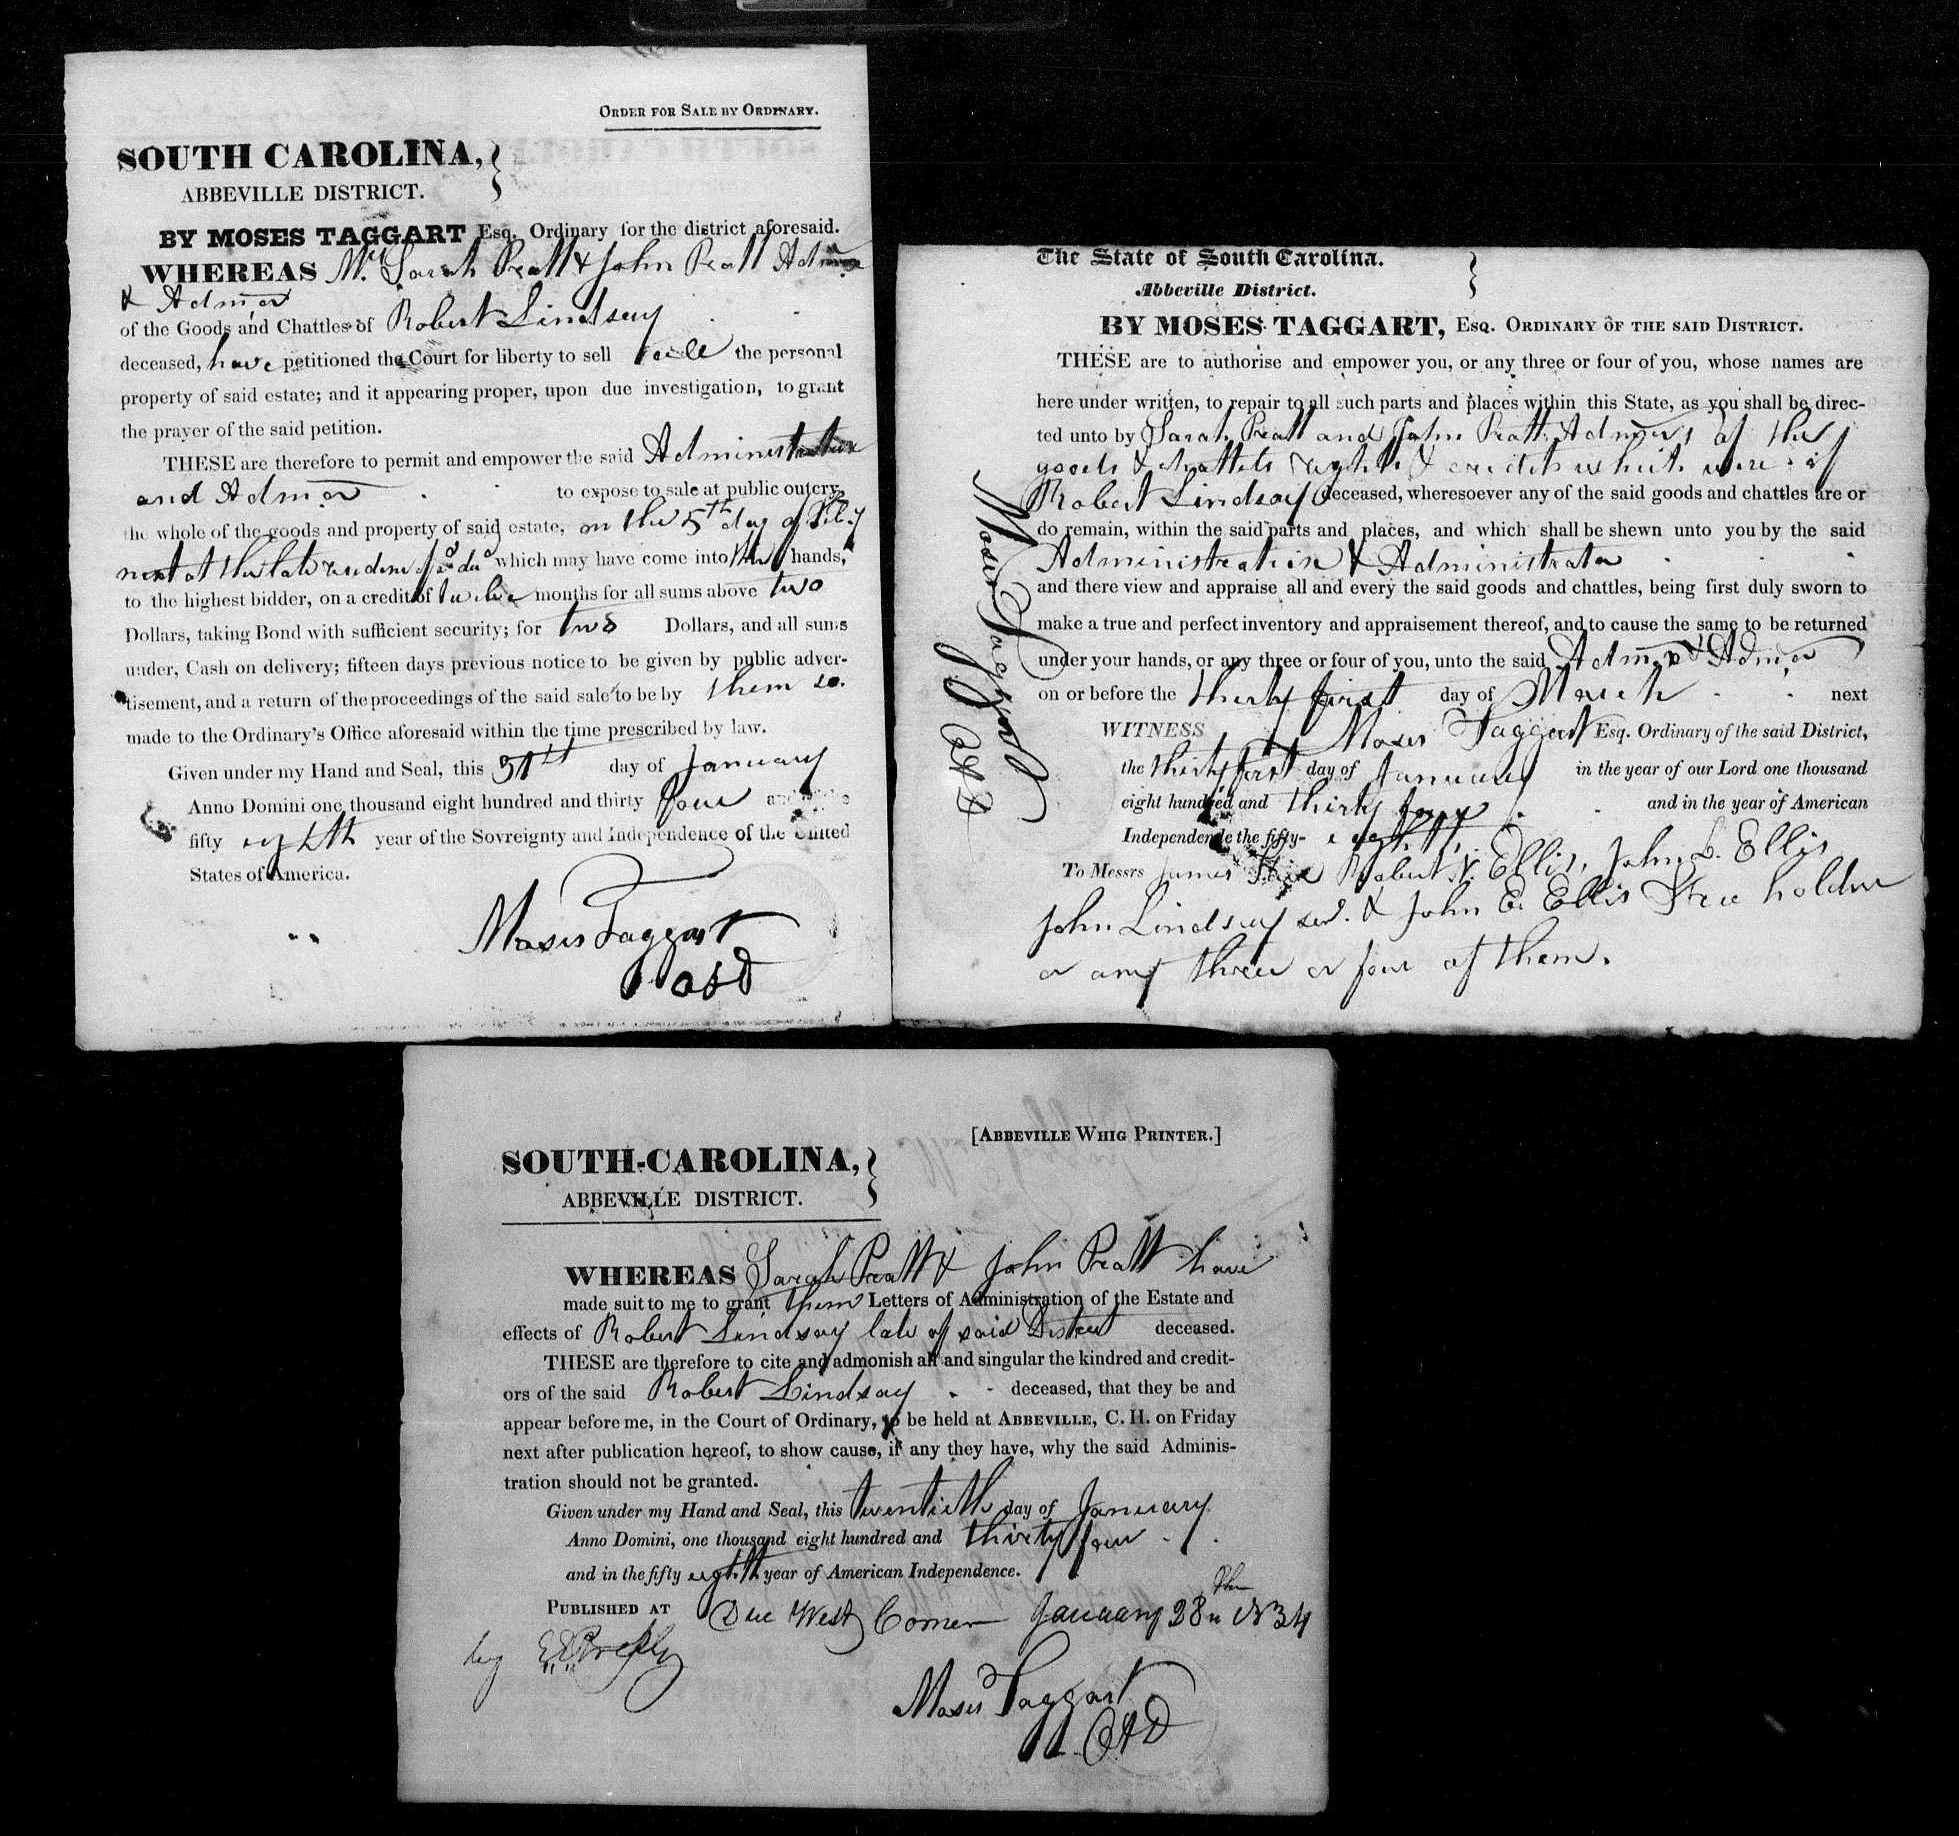 ORDER FOR SALE BY ORDINARY.
SOUTH CAROLINA,
ABBEVILLE DISTRICT.
BY MOSES TAGGART Esq. Ordinary for the district aforesaid.
WHEREAS Mrs Sarah Pratt & John Pratt
& Admor
of the Goods and Chattles of Robert Lindsay
deceased, have petitioned the Court for liberty to sell the personal
property of said estate; and it appearing proper, upon due investigation, to grant
the prayer of the said petition.
THESE are therefore to permit and empower the said Administratrix
and Admor to expose to sale at public outcry,
the whole of the goods and property of said estate, on the 5th day of Feby
next at the late residence of said decd which may have come into their hands,
to the highest bidder, on a credit of twelve months for all sums above two
Dollars, taking Bond with sufficient security; for two Dollars, and all sums
under, Cash on delivery; fifteen days previous notice to be given by public adver-
tisement, and a return of the proceedings of the said sale to be by them so.
made to the Ordinary's Office aforesaid within the time prescribed by law.
Given under my Hand and Seal, this 31th day of January
Anno Domini one thousand eight hundred and thirty four and of the
fifty eighth year of the Sovreignty and Independence of the United
States of America.
Moses Taggart
OAD
The State of South Carolina.
Abbeville District.
BY MOSES TAGGART, ESQ. ORDINARY OF THE SAID DISTRICT.
THESE are to authorise and empower you, or any three or four of you, whose names are
here under written, to repair to all such parts and places within this State, as you shall be direc-
ted unto by Sarah Pratt and John Pratt Admors of the
goods & chattels rights & credits which were of
Robert Lindsay deceased, wheresoever any of the said goods and chattles are or
do remain, within the said parts and places, and which shall be shewn unto you by the said
Administratrix & Administrator
and there view and appraise all and every the said goods and chattles, being first duly sworn to
make a true and perfect inventory and appraisement thereof, and to cause the same to be returned
under your hands, or any three or four of you, unto the said Admrx & Admor
on or before the thirty first day of March next
WITNESS Moses Taggart Esq. Ordinary of the said District,
the thirty first day of January in the year of our Lord one thousand
eight hundred and thirty four and in the year of American
Independence the fifty-eighth.
To Messrs James Robert Ellis, John L. Ellis
John Lindsay & John E. Ellis Free holders
or any three or four of them.
Moses Taggart
OAD
[ABBEVILLE WHIG PRINTER.]
SOUTH-CAROLINA,
ABBEVILLE DISTRICT.
WHEREAS Sarah Pratt & John Pratt have
made suit to me to grant them Letters of Administration of the Estate and
effects of Robert Lindsay late of said District deceased.
THESE are therefore to cite and admonish all and singular the kindred and credit-
ors of the said Robert Lindsay deceased, that they be and
appear before me, in the Court of Ordinary, to be held at ABBEVILLE, C. H. on Friday
next after publication hereof, to show cause, if any they have, why the said Adminis-
tration should not be granted.
Given under my Hand and Seal, this twentieth day of January
Anno Domini, one thousand eight hundred and thirty four
and in the fifty eighth year of American Independence.
PUBLISHED AT Due West Corner January 28th 1834
by
Moses Taggart
OAD